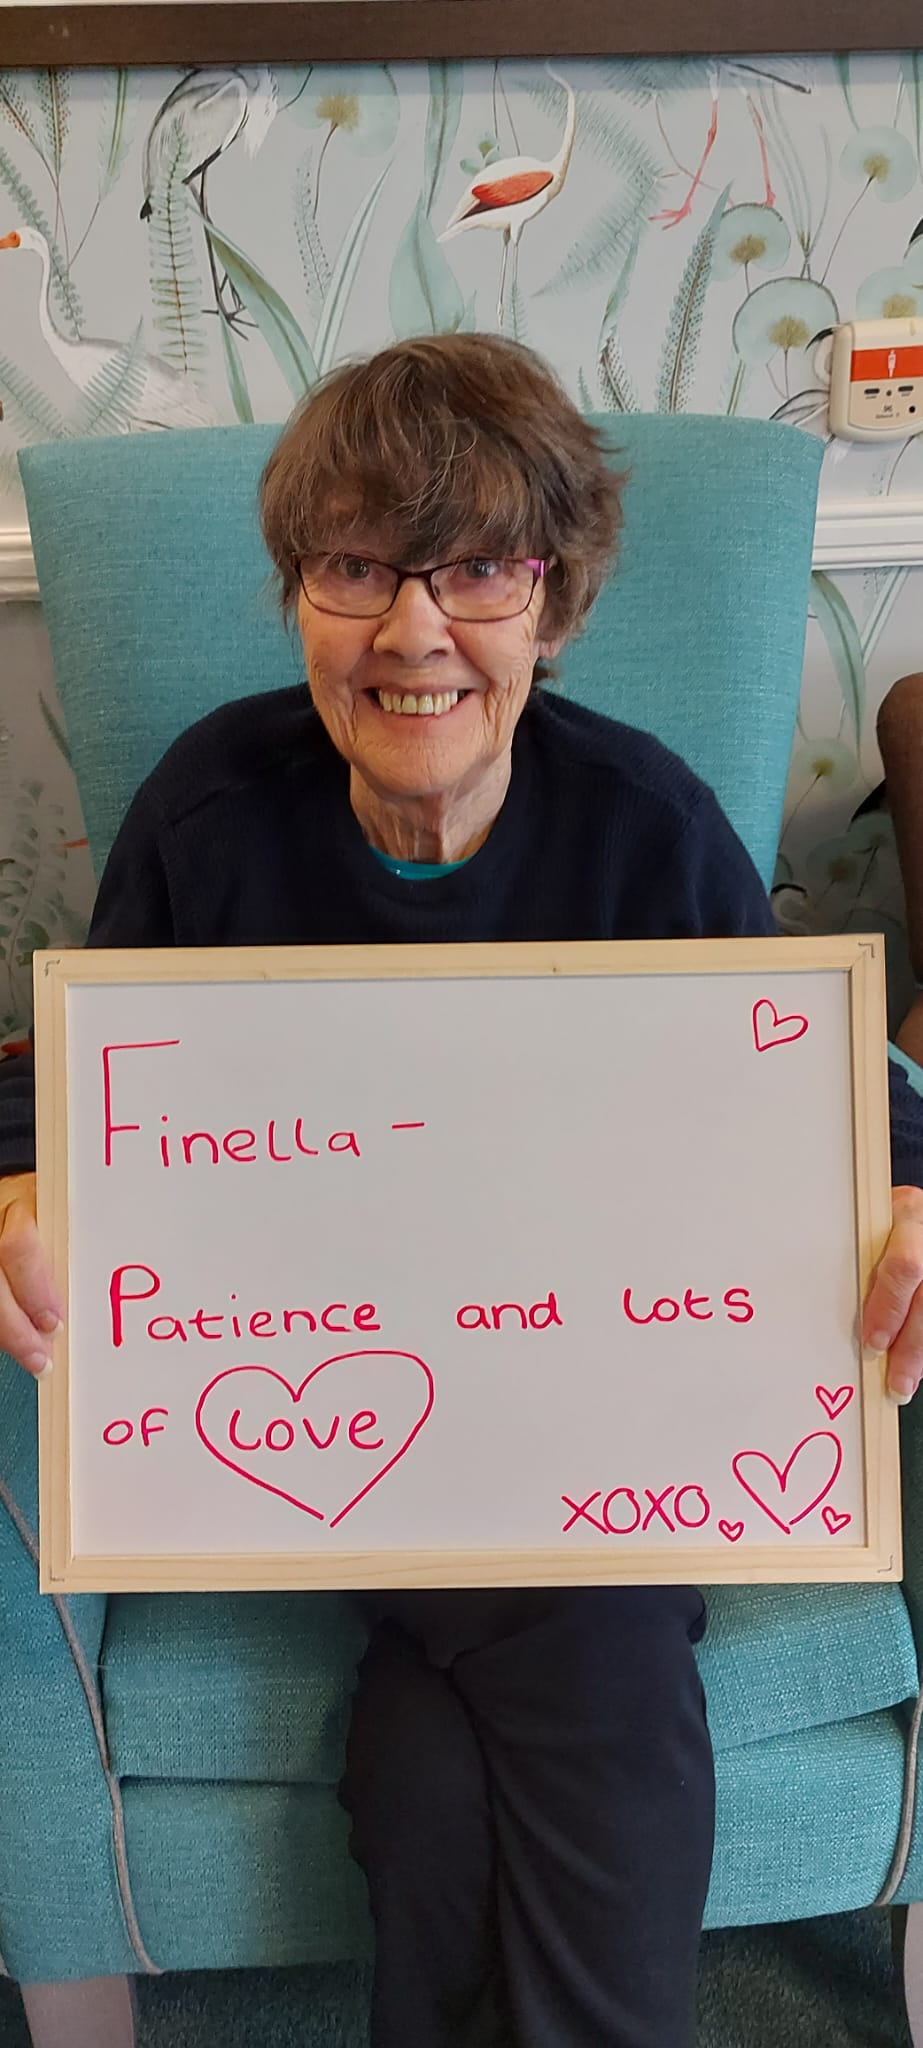 Finella -
Patience and lots
of love
xoxo